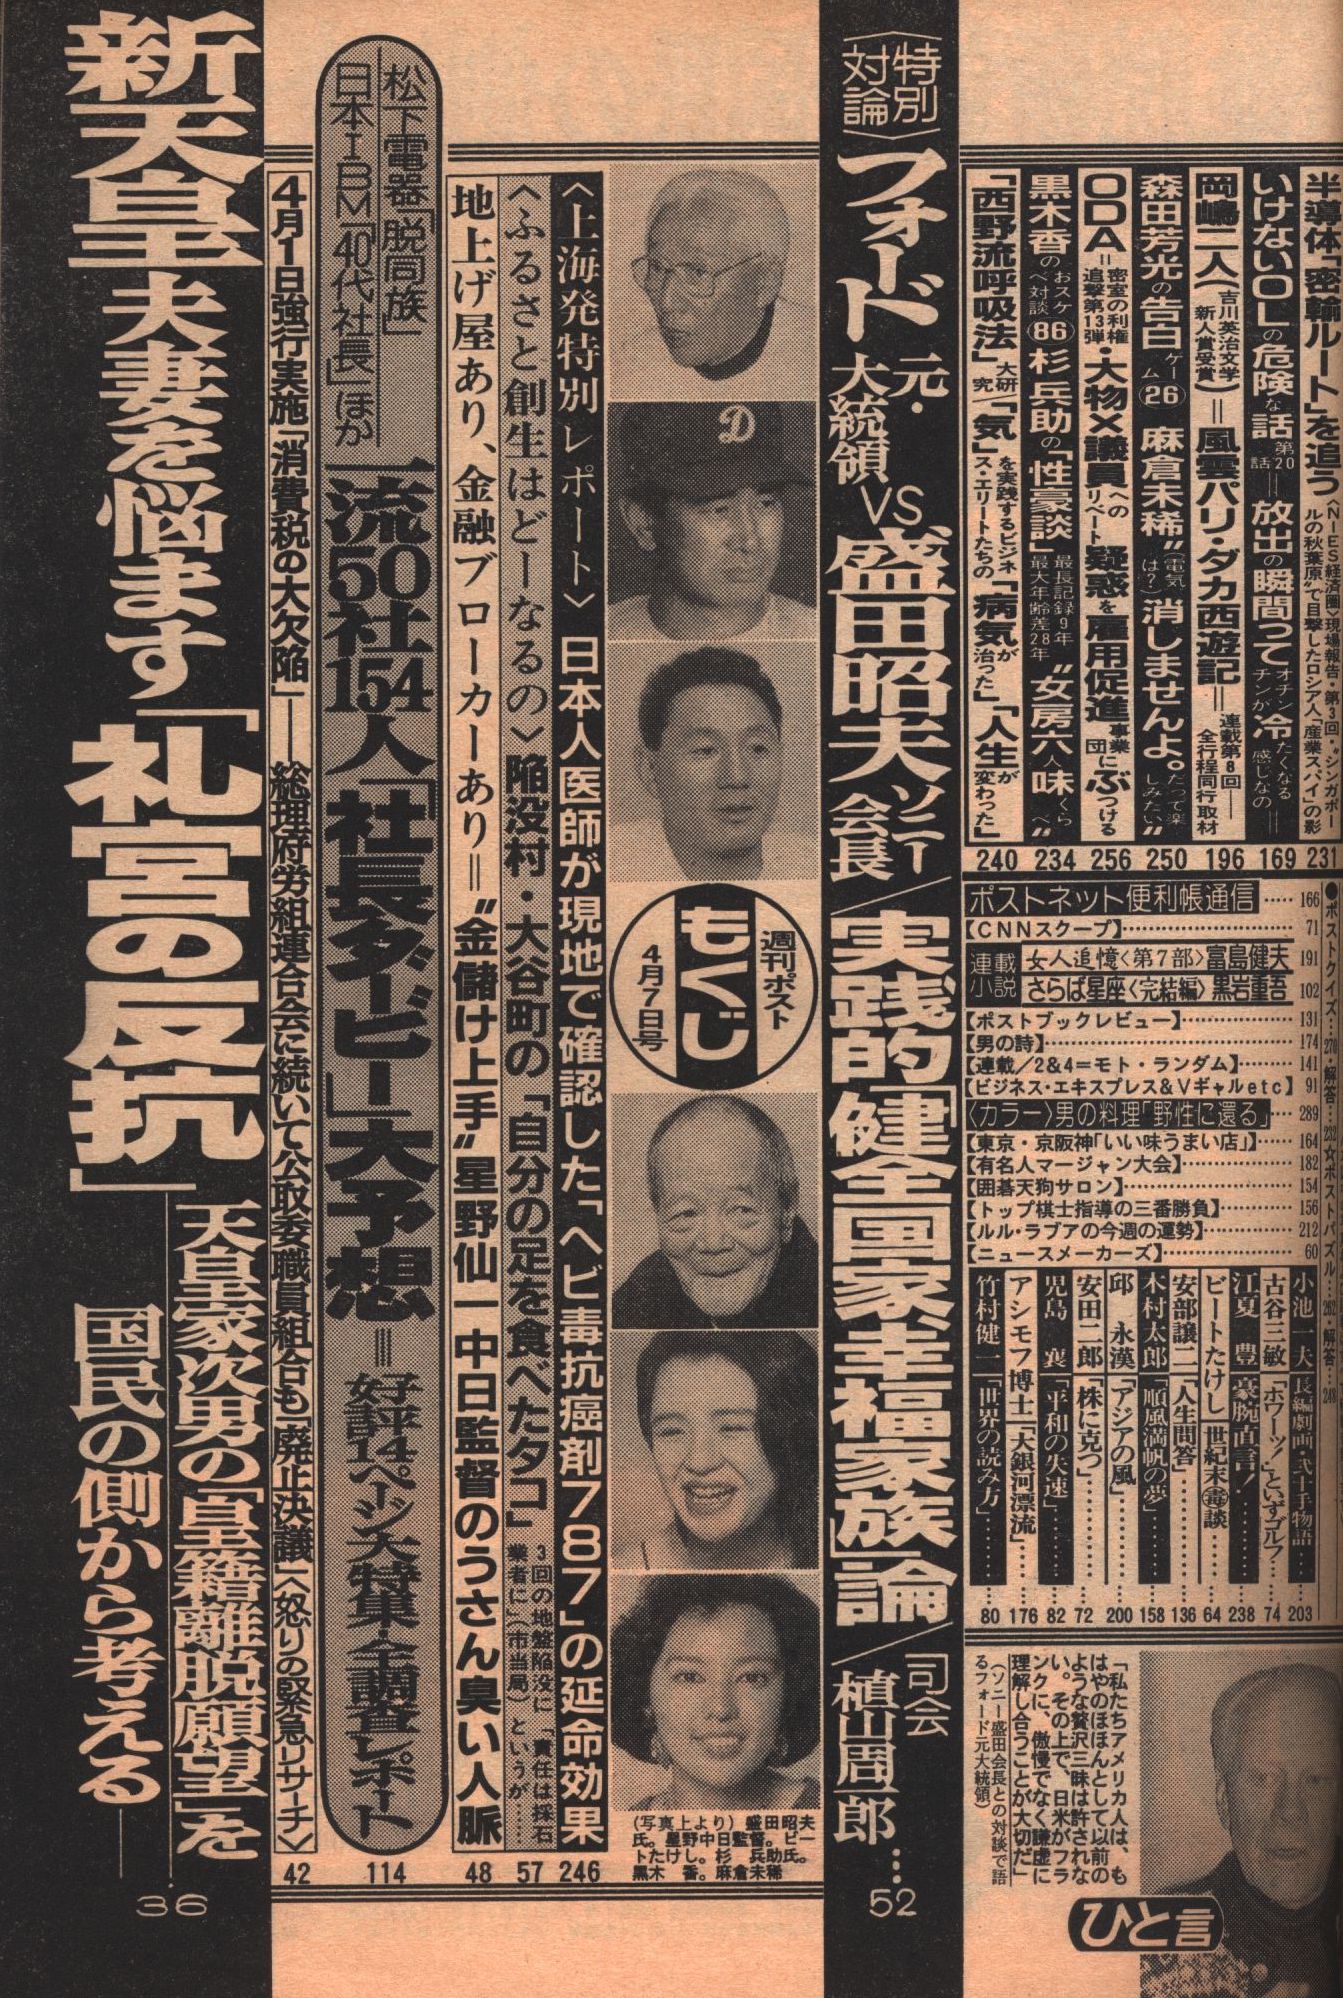 半導体「密輸ルート」を追う
〈NIES経済圏〉現場報告・第3回・“シンガポールの秋葉原”で目撃したロシア人「産業スパイ」の影
231
いけないOLの危険な話 第20話=放出の瞬間って オチンチンが 冷たくなる感じなの=
169
岡嶋二人(吉川英治文学新人賞受賞)=風雲パリ・ダカ西遊記=連載第8回―全行程同行取材
196
森田芳光の告白ゲーム㉖ 麻倉未稀“(電気は?)消しませんよ。だって楽しみたい”
250
ODA=密室の利権追撃第13弾・大物×議員へのリベート疑惑を雇用促進事業団にぶつける
256
黒木香のおスケベ対談(86)杉兵助の「性豪談」最長記録9年最大年齢差28年“女房六人味くらべ”
234
「西野流呼吸法」大研究/「気」を実践するビジネス・エリートたちの「病気が治った」「人生が変わった」
240
●ポストクイズ…270・解答…232☆ポストパズル…269・解答…240
ポストネット便利帳通信……166
【CNNスクープ】……71
連載小説
女人追憶〈第7部〉富島健夫 191
さらば星座〈完結編〉黒岩重吾 102
【ポストブックレビュー】……131
【男の詩】……174
【連載/2&4=モト・ランダム】……141
【ビジネス・エキスプレス&Vギャルetc】91
〈カラー〉男の料理「野性に還る」……289
【東京・京阪神「いい味うまい店」】……164
【有名人マージャン大会】……182
【囲碁天狗サロン】……154
【トップ棋士指導の三番勝負】……156
【ルル・ラブアの今週の運勢】……212
【ニュースメーカーズ】……60
小池一夫 長編劇画・弐十手物語…203
古谷三敏「ホワーッ!」といずゴルフ…74
江夏 豊 豪腕直言!……238
ビートたけし 世紀末㊥毒談 64
安部譲二「人生問答」……136
木村太郎「順風満帆の夢」……158
邱 永漢「アジアの風」……200
安田二郎「株に克つ」……72
児島 襄「平和の失速」……82
アシモフ博士「大銀河漂流」176
竹村健一「世界の読み方」……80
「私たちアメリカ人は、もはやのほほんとして以前のような贅沢三昧は許されない。その上で、日米がフランクに、傲慢でなく謙虚に理解し合うことが大切だ」(ソニー盛田会長との対談で語るフォード元大統領)
ひと言
〈特別対論〉フォード元・大統領VS.盛田昭夫ソニー会長/実践的「健全国家・幸福家族」論/司会 植山周一郎…
52
週刊ポスト
もくじ
4月7日号
(写真上より)盛田昭夫
氏。星野中日監督。ビー
トたけし。杉 兵助氏。
黒木 香。麻倉未稀
〈上海発特別レポート〉日本人医師が現地で確認した「ヘビ毒抗癌剤787」の延命効果
246
〈ふるさと創生はどーなるの〉陥没村・大谷町の「自分の足を食べたタコ」3回の地盤陥没に「責任は採石業者に」(市当局)というが……
57
地上げ屋あり、金融ブローカーあり=“金儲け上手”星野仙一中日監督のうさん臭い人脈
48
松下電器「脱同族」
日本IBM「40代社長」ほか
一流50社154人「社長ダービー」大予想=好評14ページ大特集・全調査レポート
114
4月1日強行実施「消費税の大欠陥」――総理府労組連合会に続いて公取委職員組合も「廃止決議」〈怒りの緊急リサーチ〉
42
新天皇夫妻を悩ます「礼宮の反抗」
天皇家次男の「皇籍離脱願望」を
国民の側から考える――
36